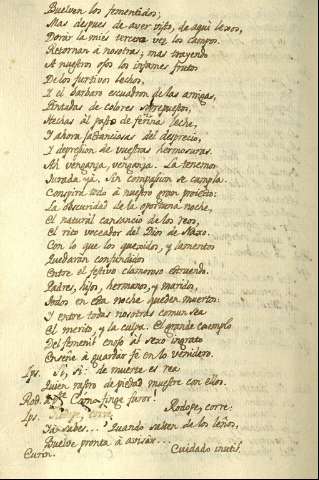 Buelven los fementidos;
Mas despues de aver visto, de aqui lexos,
Dorar la mies tercera vez los campos.
Retornan á nosotras; mas trayendo
A nuestros ojos los infames frutos
De los furtivos lechos,
I el barbaro escuadron de las amigas,
Pintadas de colores sobrepuestos,
Hechas al pasto de ferina leche,
I ahora jactanciosas del desprecio,
I depresion de vuestras hermosuras.
Ah venganza, venganza. La tenemos
Jurada ya. Sin compasion se cumpla.
Conspira todo á nuestro gran proiecto:
La obscuridad de la oportuna noche,
El natural cansancio de los reos,
El rito voceador del Dios de Naxo.
Con lo que los quexidos, y lamentos
Quedarán confundidos
Entre el festivo clamoroso estruendo.
Padres, hijos, hermanos, y maridos,
Todos en esta noche queden muertos:
I entre todas nosotras comun sea
El merito, y la culpa. El grande exemplo
Del femenil enojo al sexo ingrato
Enseñe á guardar fe en lo venidero.
Ips. Si, si: de muerte es rea
Quien rastro de piedad muestre con ellos.
Rod. Como finge furor!
Ips. Rodope, corre:
Ya sabes... Quando salten de los leños,
Buelve pronta á avisar...
Curin. Cuidado inutil.